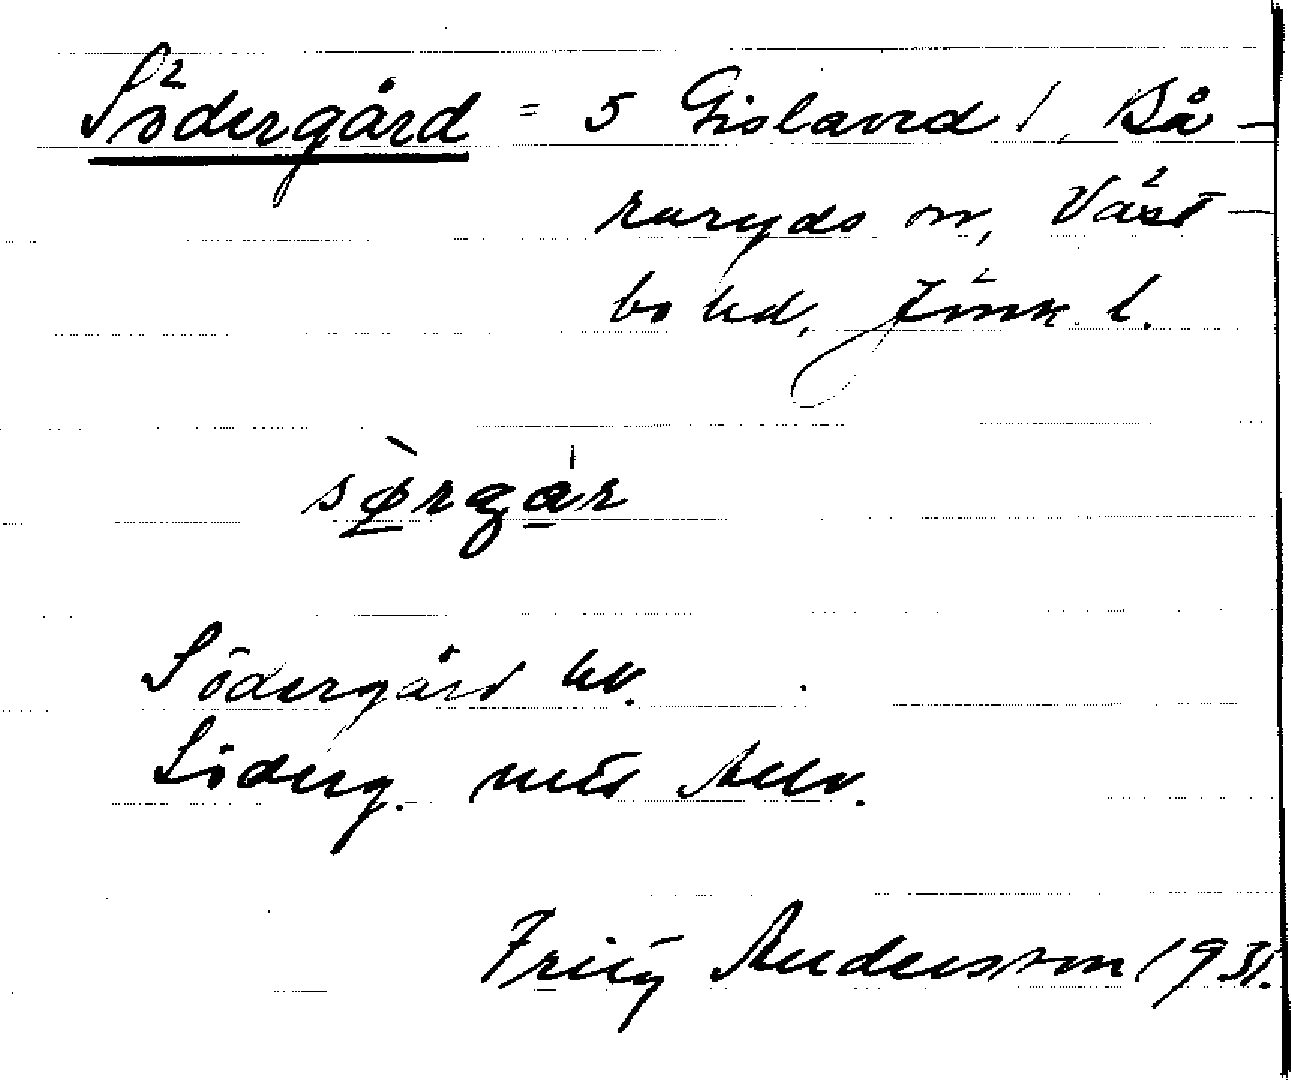 Södergård = 5 Gislaved /, Bå-
raryds sn, Väst-
bo hd, Jönk. l.
sørgar
Södergård hv.
Söderg.
Fritz Andersson 1931.